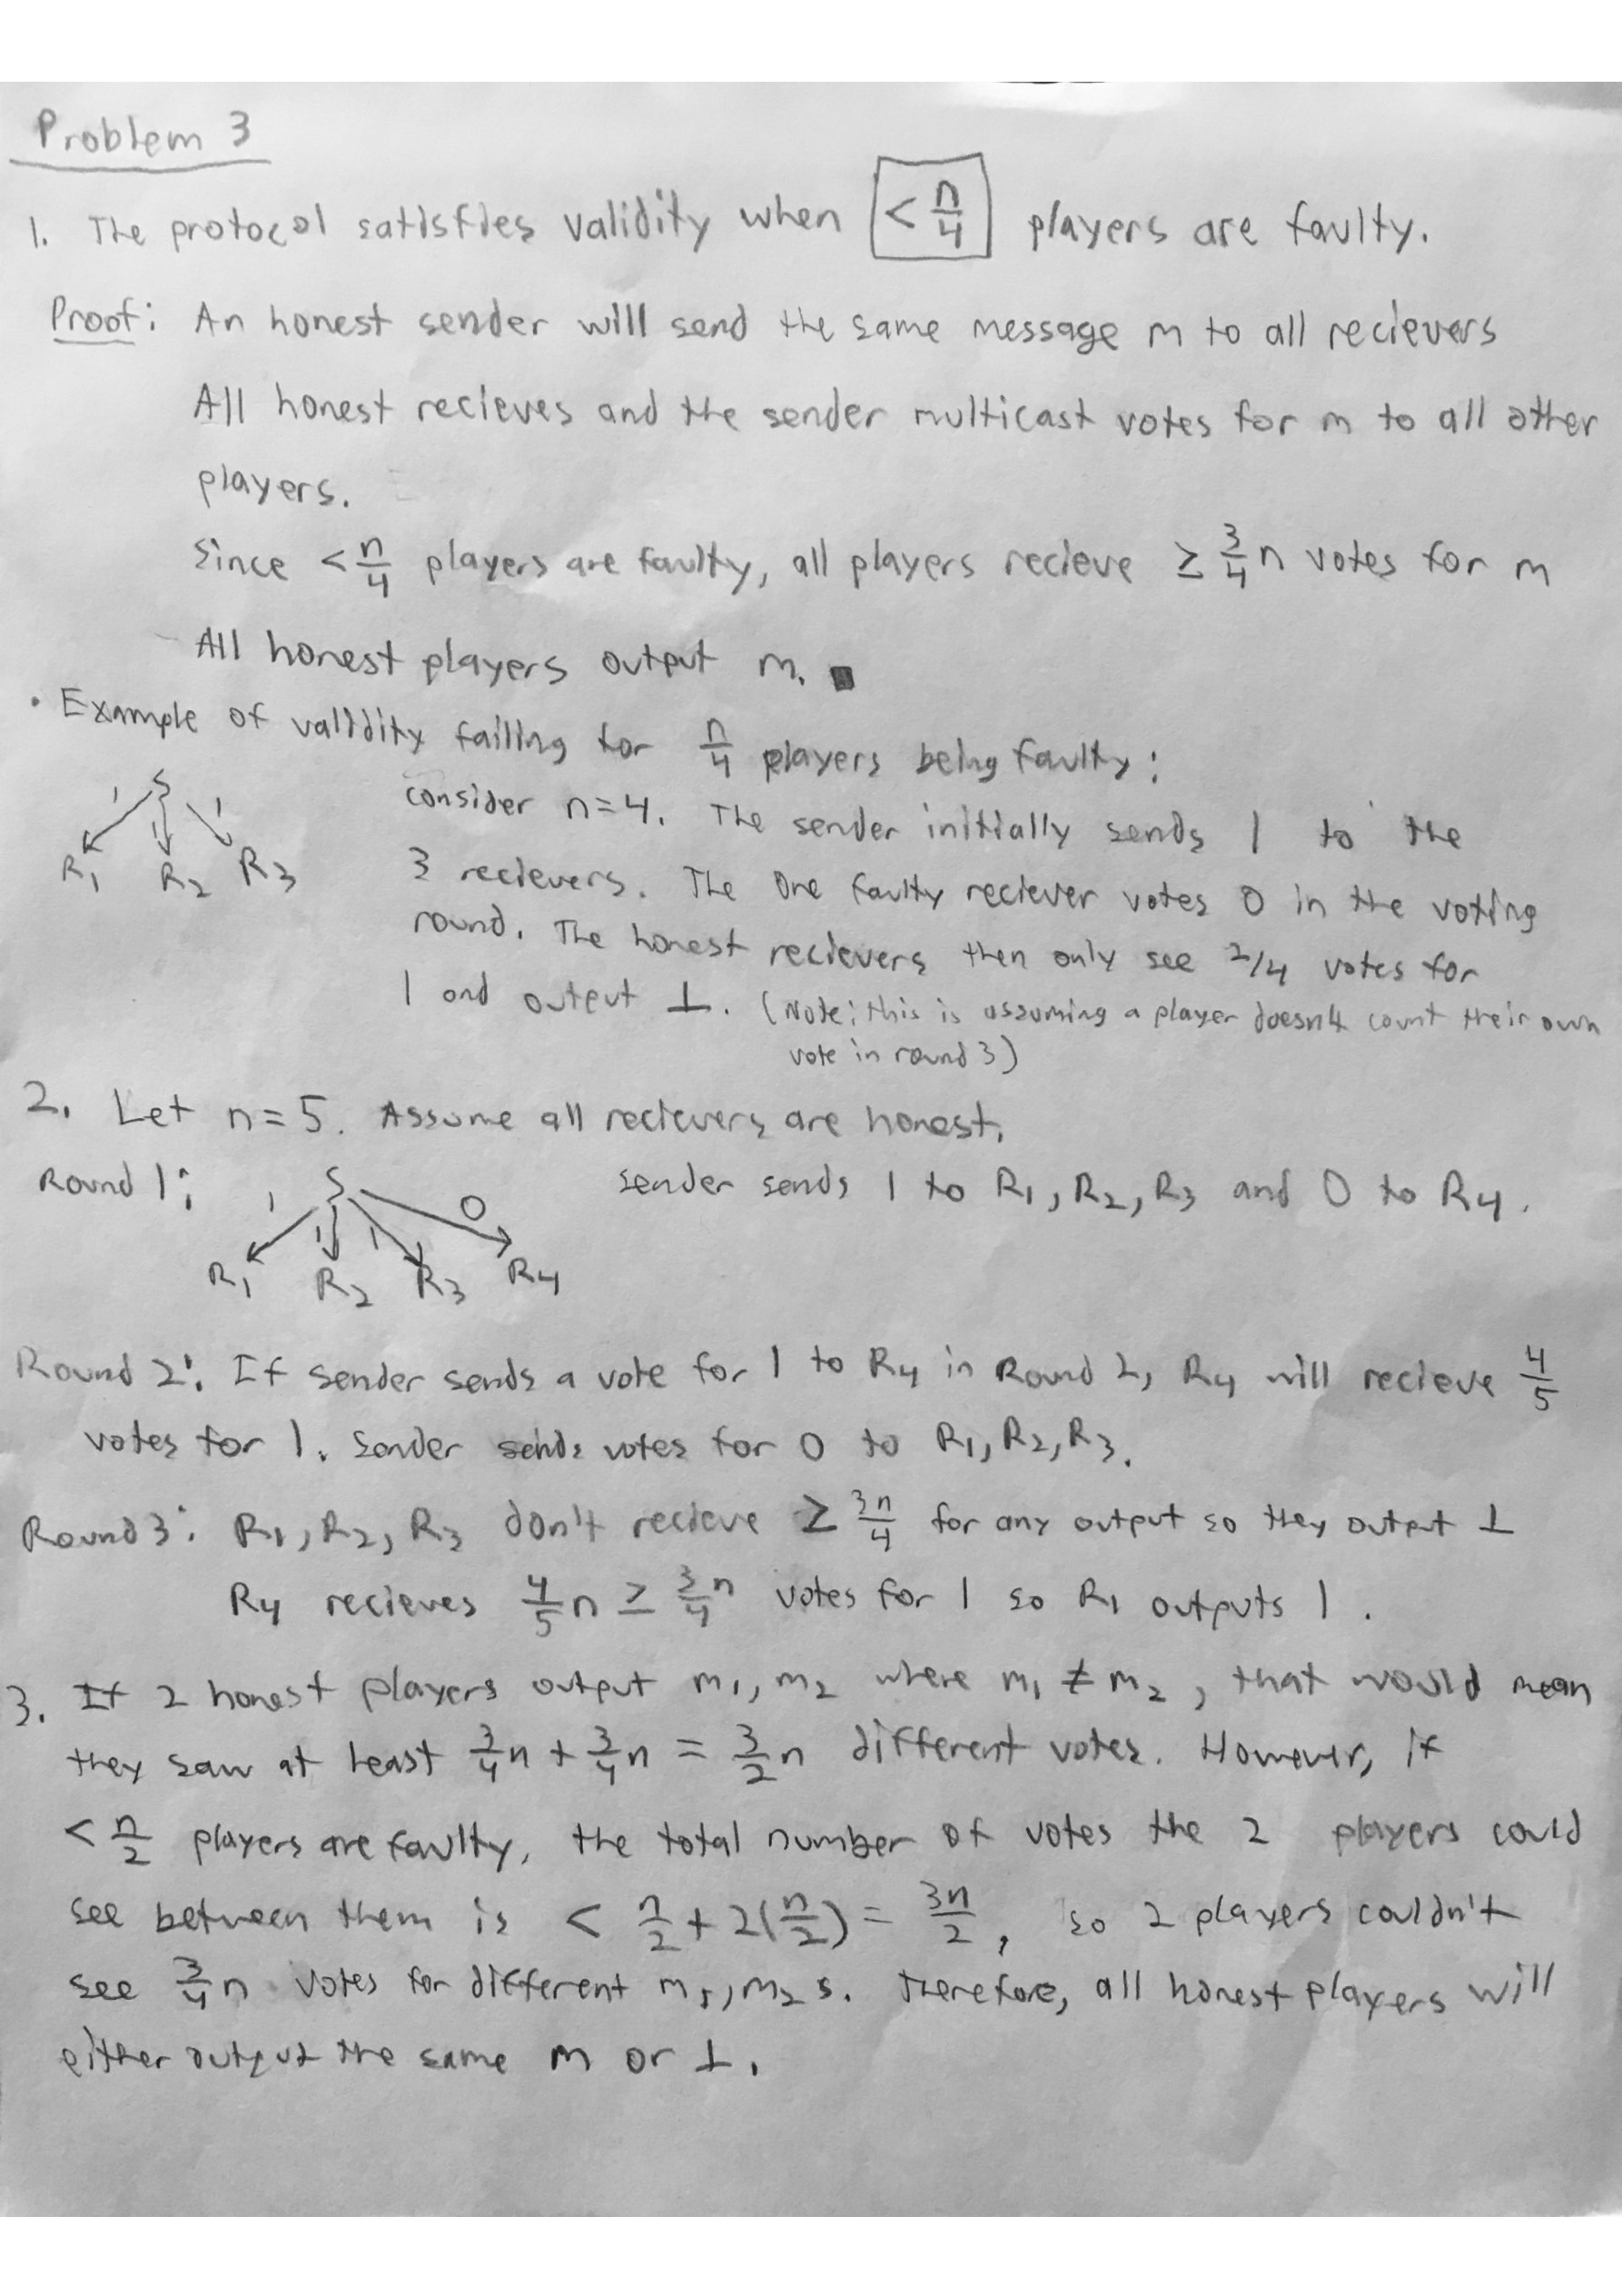 Problem 3
1. The protocol satisfies validity when < n/4 players are faulty.
Proof: An honest sender will send the same message m to all recievers
All honest recieves and the sender multicast votes for m to all other
players.
Since < n/4 players are faulty, all players recieve ≥ 3/4 n votes for m
All honest players output m. ■
• Example of validity failing for n/4 players being faulty:
S
1 1 1
R1 R2 R3
consider n=4. The sender initially sends 1 to the
3 recievers. The one faulty reciever votes 0 in the voting
round. The honest recievers then only see 2/4 votes for
1 and output ⊥. (Note: this is assuming a player doesn't count their own
vote in round 3)
2. Let n=5. Assume all recievers are honest.
Round 1: S sender sends 1 to R1, R2, R3 and 0 to R4.
1 1 1 0
R1 R2 R3 R4
Round 2: If sender sends a vote for 1 to R4 in Round 2, R4 will recieve 4/5
votes for 1. Sender sends votes for 0 to R1, R2, R3.
Round 3: R1, R2, R3 don't recieve ≥ 3n/4 for any output so they output ⊥
R4 recieves 4/5 n ≥ 3/4 n votes for 1 so R1 outputs 1.
3. If 2 honest players output m1, m2 where m1 ≠ m2, that would mean
they saw at least 3/4 n + 3/4 n = 3/2 n different votes. However, if
< n/2 players are faulty, the total number of votes the 2 players could
see between them is < n/2 + 2(n/2) = 3n/2, so 2 players couldn't
see 3/4 n votes for different m1, m2 s. Therefore, all honest players will
either output the same m or ⊥.